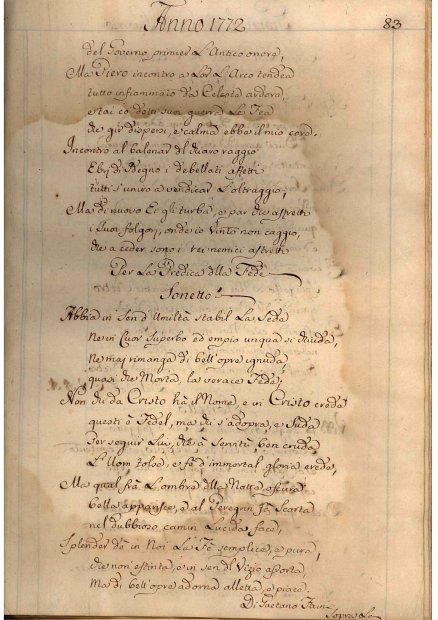 Anno 1772
83
del Governo primier L'Antico onore,
Ma Piero incontro a Lor L'Arco tendea
tutto infiammato da Celeste ardore,
e tai co' detti suoi guerra Le
che gir dispersi, e calma ebbe il mio core.
Incontro al balenar del chiaro raggio
Ebri di sdegno i debellati affetti
tutti s'uniro a vendicar L'oltraggio;
Ma di nuovo Ei gli turba, e par che
i suoi folgori, onde io vinto non caggio,
che a ceder sono i rei nemici astretti
Per La Predica della Fede
Sonetto
Abbia in Sen d'Umiltà stabil La Sede
Ne in Cuor Superbo ed empio unqua si chiuda,
Ne mai rimanga di bell'opre ignuda,
quasi che Morta, la verace Fede;
Non chi da Cristo hà il Nome, e in Cristo crede
questi è Fedel, ma chi s'adopra, e Suda
Per seguir Lui, che a Servitù, ben cruda,
L'Uom tolse, e fe d'immortal gloria erede,
Ma qual frà L'ombre della Notte oscura
bella apparisce, e al Peregrin fà Scorta
nel dubbioso camin Lucida face,
Splender dè in Noi La Fè semplice, e pura,
che non estinta, e in sen del Vizio assorta,
Ma di bell'opre adorna alletta, e piace.
Di Gaetano
Sopra La